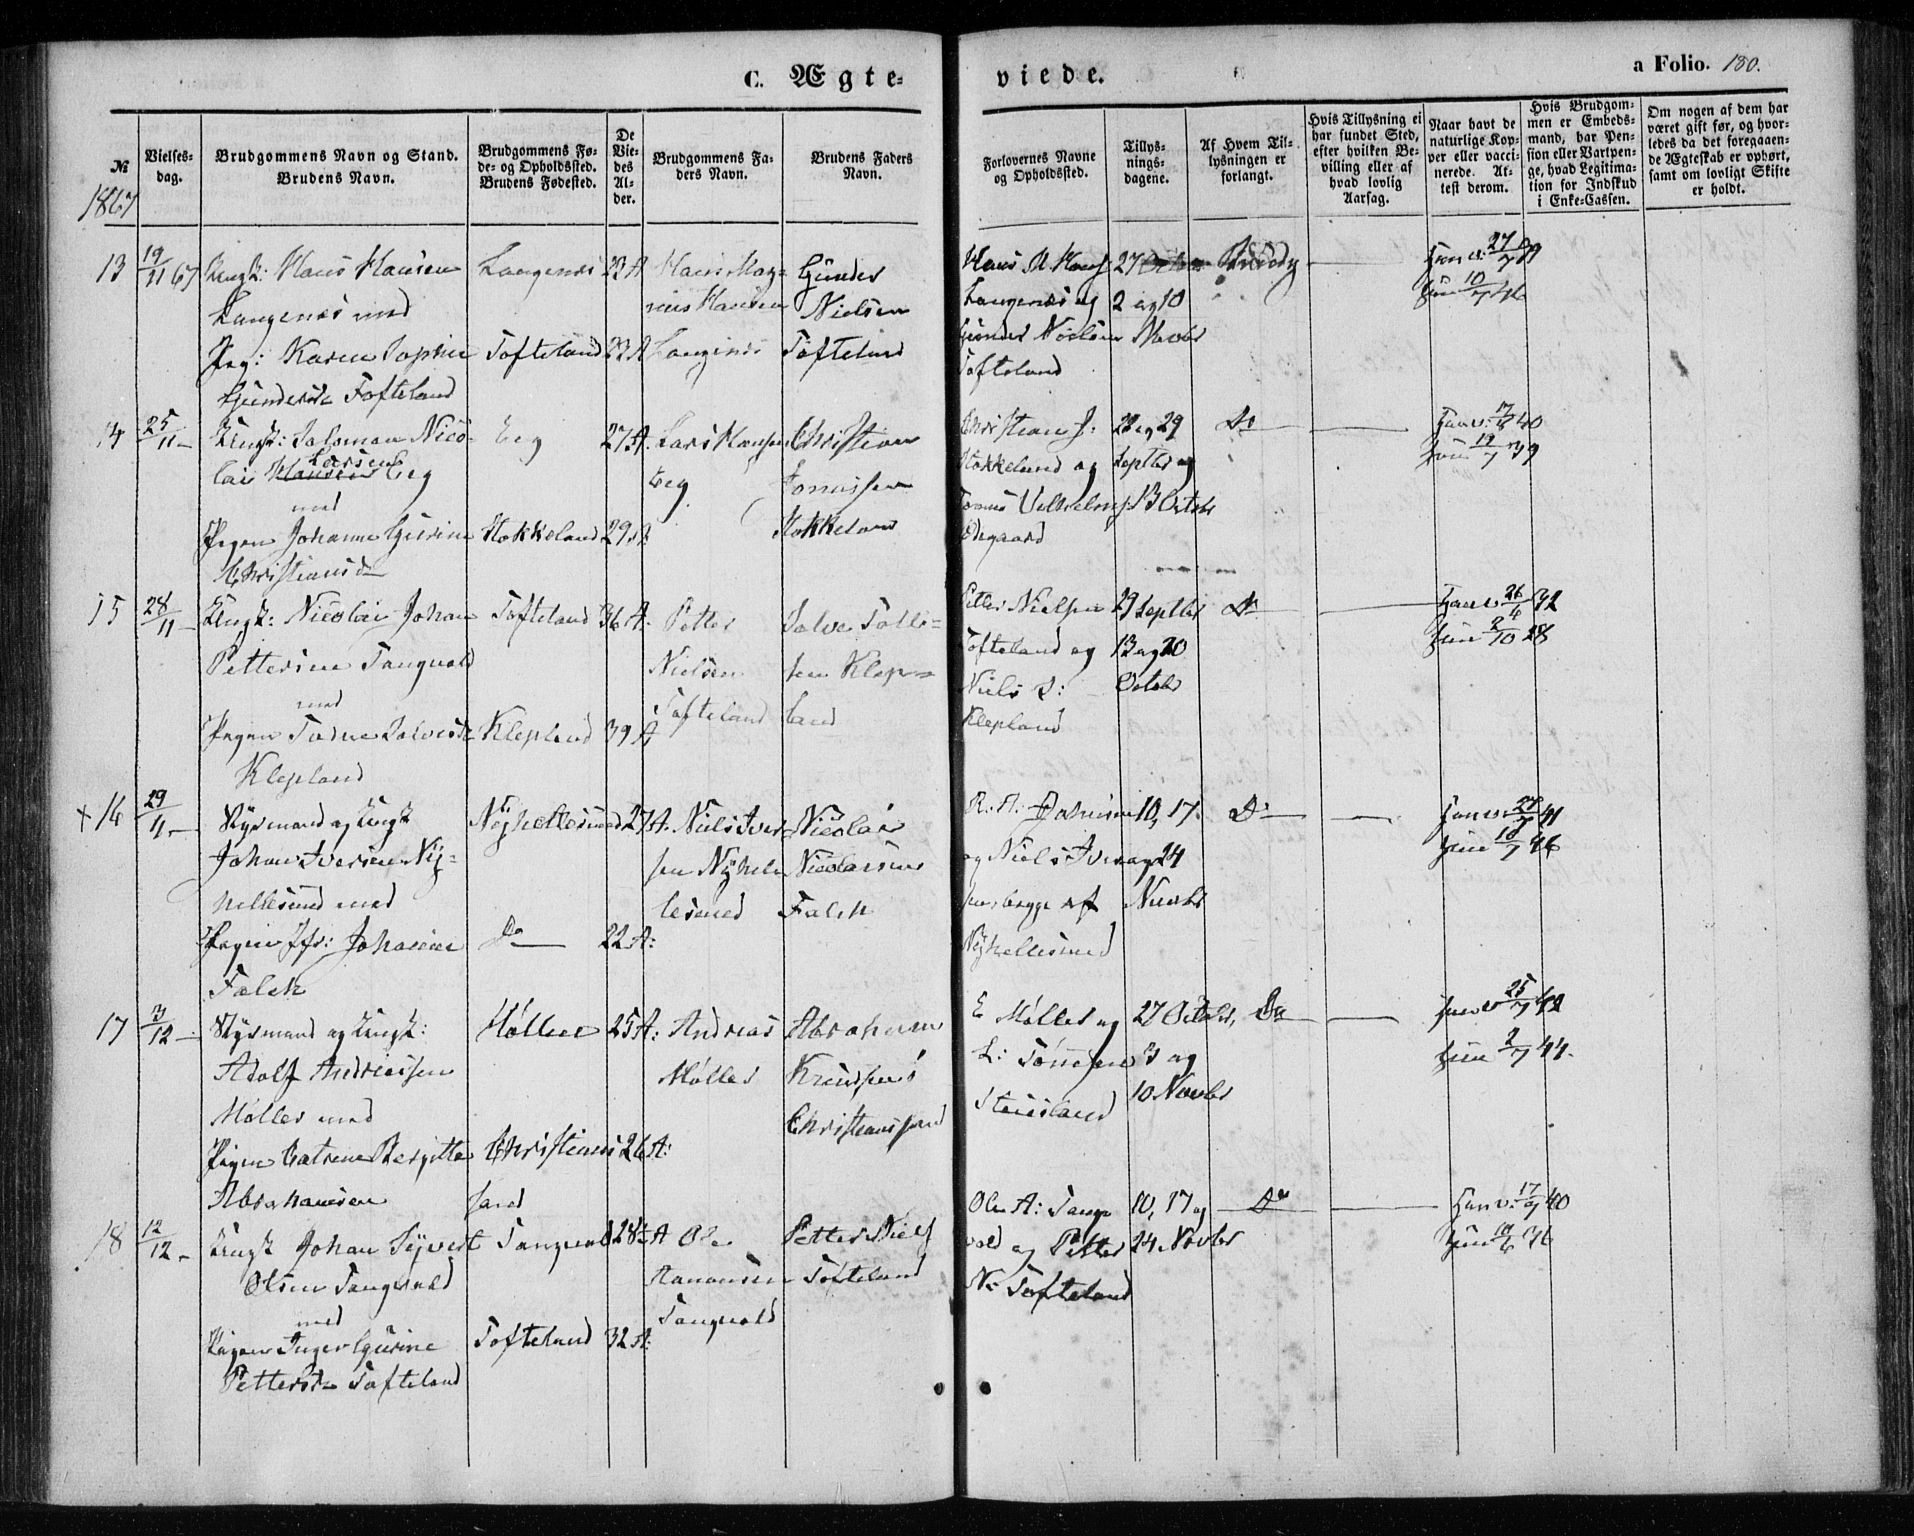 C. Ægte-
viede.
a Folio. 180.
№
1867
Vielses-
dag.
Brudgommens Navn og Stand.
Brudens Navn.
Brudgommens Fø-
de- og Opholdssted.
Brudens Fødested.
De
Vie-
des
Al-
der.
Brudgommens Fa-
ders Navn.
Brudens Faders
Navn.
Forlovernes Navne
og Opholdssted.
Tillys-
nings-
dagene.
Af Hvem Til-
lysningen er
forlangt.
Hvis Tillysning ei
har fundet Sted,
efter hvilken Be-
villing eller af
hvad lovlig
Aarsag.
Naar havt de
naturlige Kop-
per eller vacci-
nerede. At-
test derom.
Hvis Brudgom-
men er Embeds-
mand, har Pen-
sion eller Vartpen-
ge, hvad Legitima-
tion for Indskud
i Enke-Cassen.
Om nogen af dem har
været gift før, og hvor-
ledes da det foregaaen-
de Ægteskab er ophørt,
samt om lovligt Skifte
er holdt.
13
19/11 67
Ungk: Hans Hansen
Langenes med
Pig: Karen Sophie
Gundersd Tofteland
Langenes
Tofteland
23 A
23 A
Hans Mag-
nus Hansen
Langenes
Gunder
Nielsen
Tofteland
Hans M Hans
Langenes og
Gunder Nielsen
Tofteland
27 Octbr
2 og 10
Novbr
Hun 10/7 46
14
25/11 -
Ungk: Salomon Nico-
lai Larsen Eeg
med
Pigen Johanne Gurine
Christiansd
Eeg
Stokkeland
27 A.
29 A
Lars Hansen
Eeg
Christian
Jonassen
Stokkeland
Christian J:
Stokkeland og
Vilhelms
Ødegaard
22 og 29
Septbr og
13 Octbr
Do
Han v. 40
Hun 19/7 39
15
28/11
Ungk: Nicolai Johan
Pettersen Tangvald
med
Pigen Salvesd
Klepland
Tofteland
Klepland
36 A.
39 A
Petter
Nielsen
Tofteland
Salve Tolle-
sen Klep-
land
Petter Nielsen
Tofteland og
Niels S:
Klepland
29 Septbr
13 og 20
Octobr
Do
Han v. 26/6 32
Hun 2/10 28
+ 16
29/11 -
Styrmand og Ungk
Johan Iversen Ny-
hellesund med
Pigen Jfr: Johanne
Falck
Nyhellesund
Do
27 A.
22 A:
Niels Iver-
sen Nyhel-
lesund
Nicolai
Nicolaisen
Falck
og Niels Iver-
sen begge af
Nyhellesund
10, 17.
og 24
Novbr
Do
Han v. 27/7 41
Hun 10/7 46
17
3/12 -
Styrmand og Ungk:
Adolf Andreassen
Møller med
Pigen Catrine Bergitte
Abrahamsen
Møllen
Christians
sand
25 A:
26 A:
Andreas
Møller
Abraham
Knudsen
Christianssand
E Møller og
L: Tønnesen
Stuesland
27 Octobr,
3 og
10 Novbr
Do
Han v 25/7 42
Hun 2/7 44.
18
12/12 -
Ungk Johan Syvert
Olsen Tangvald
med
Pigen Inger Gurine
Pettersd Tofteland
Tangvald
Tofteland
28 A
32 A:
Ole
Aanonsen
Tangvald
Petter Niels
Tofteland
Ole A: Tang-
vald og Petter
N: Tofteland
10, 17 og
24 Novbr
Do
Han v. 17/9 40
Hun 36